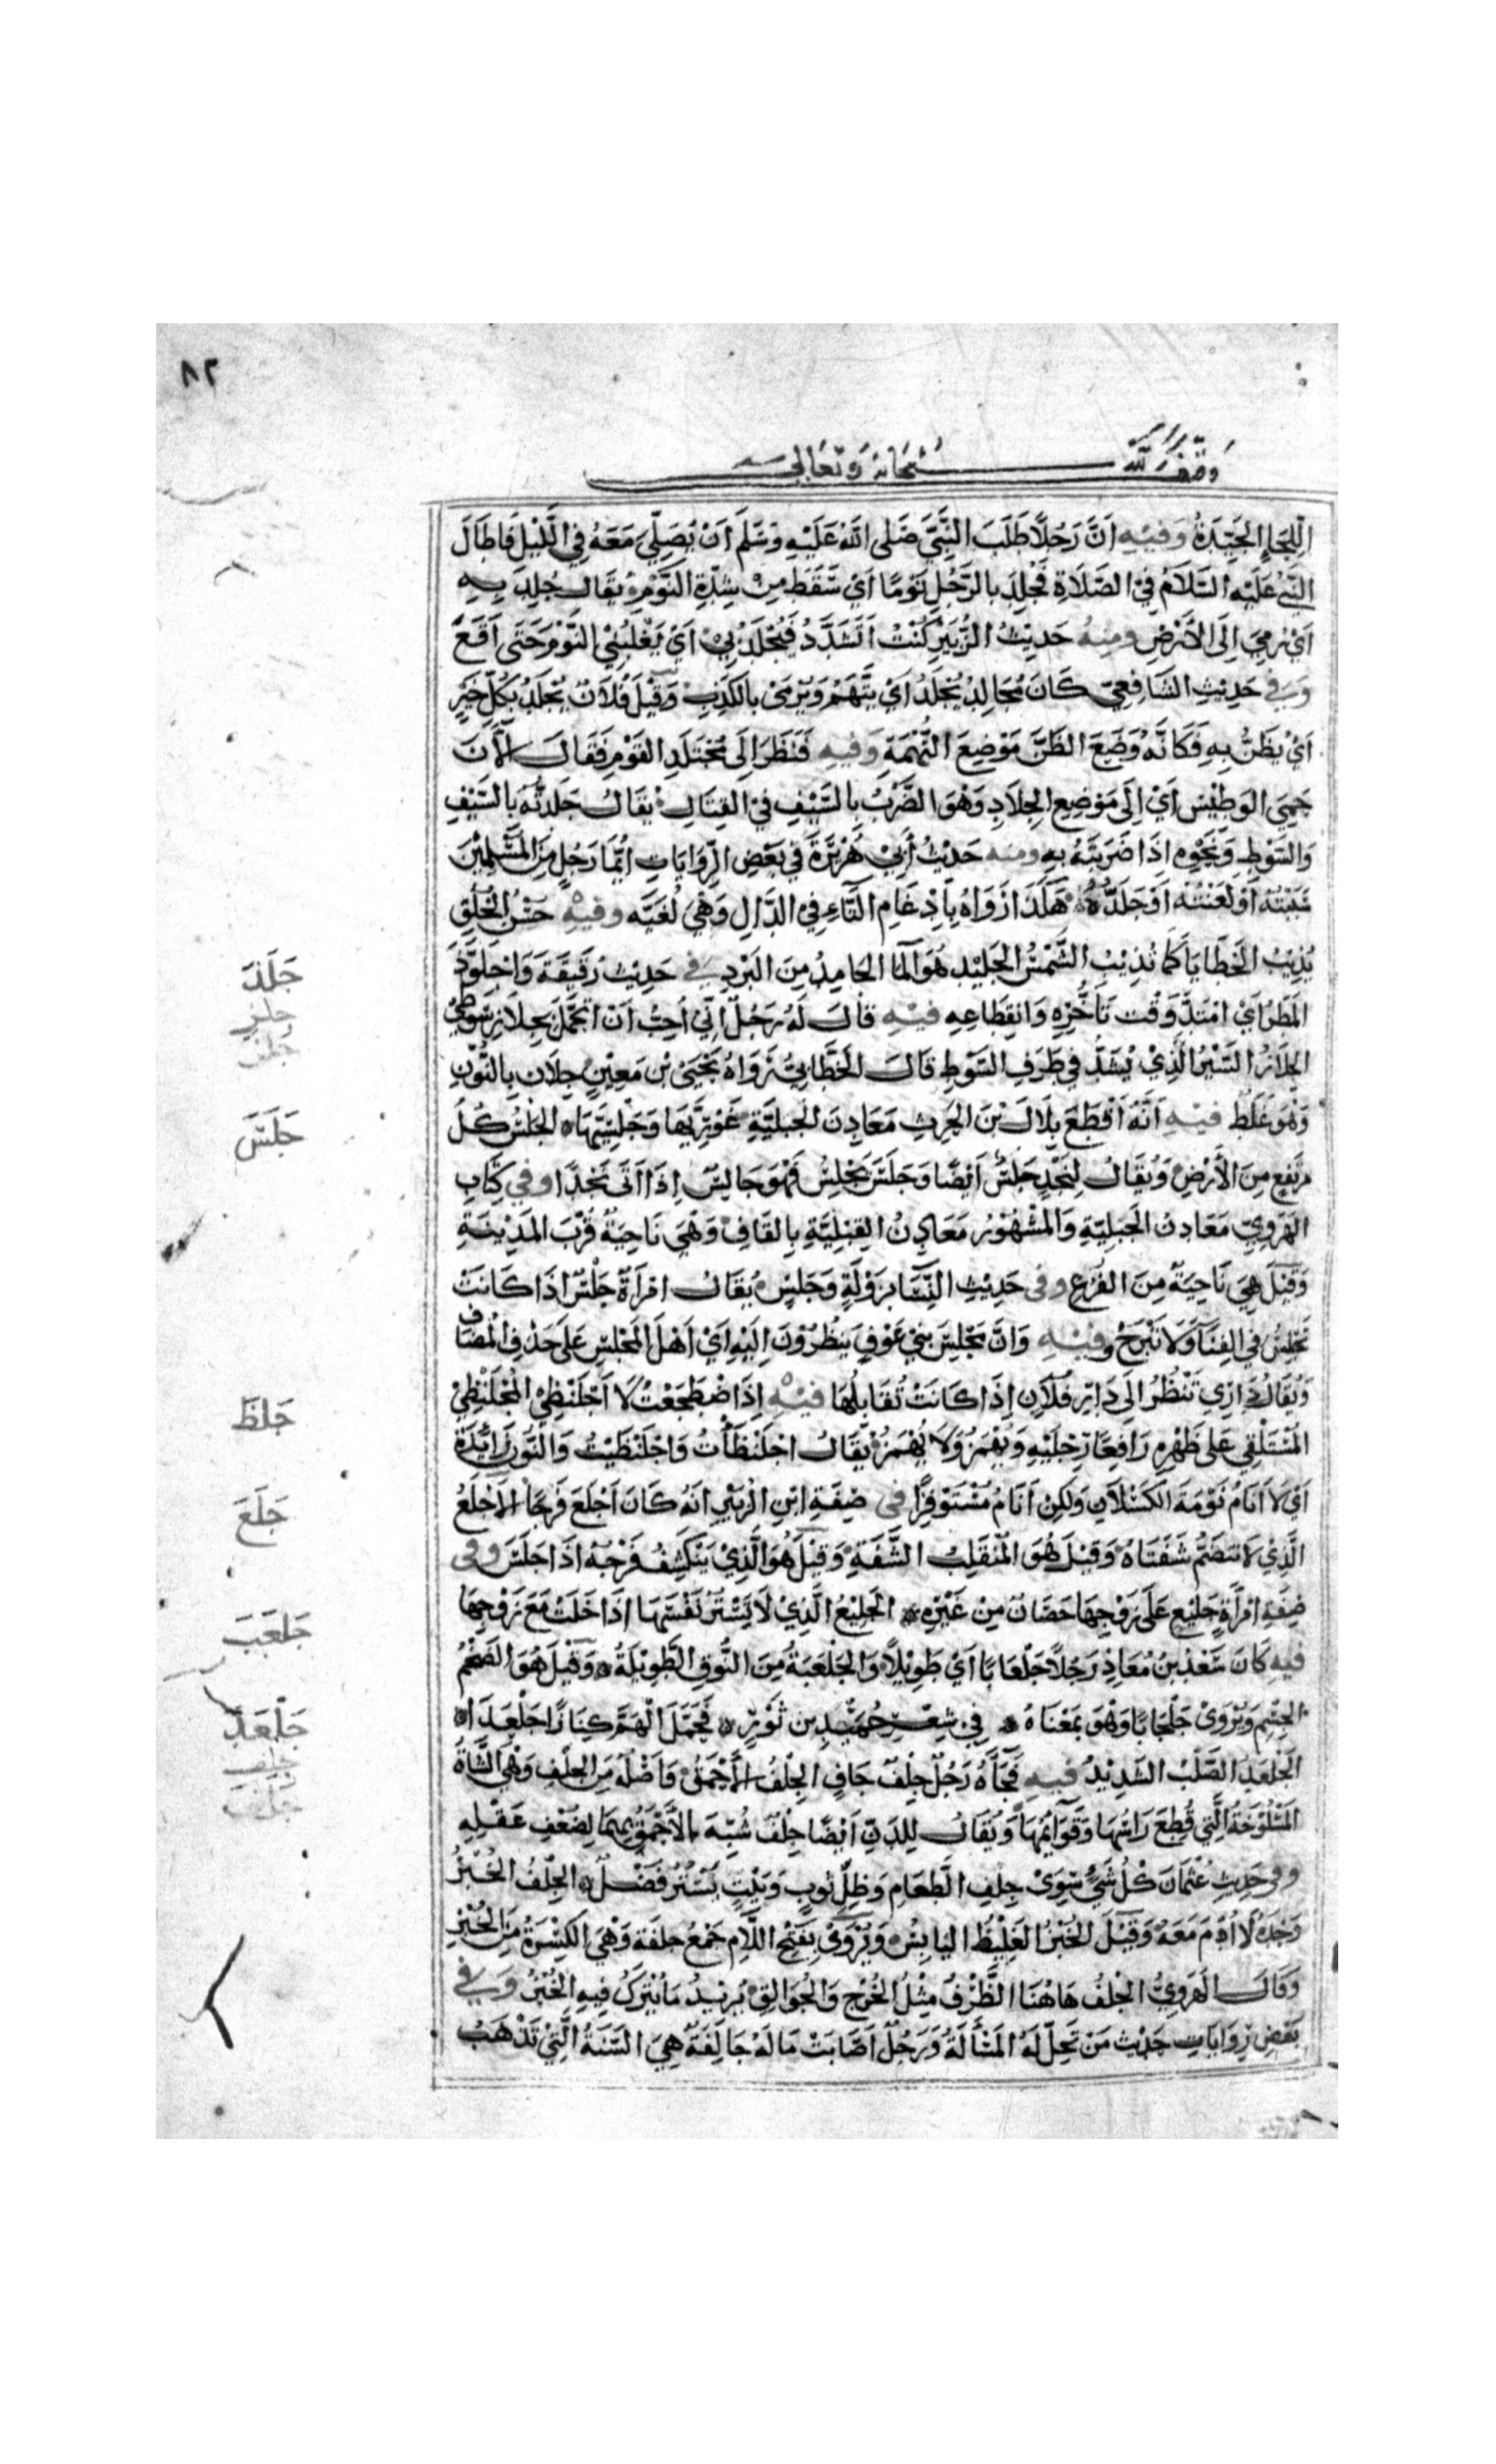 ٨٢
وقف لله سبحانه وتعالى
اللحاء الجيدة وفيه ان رجلا طلب النبي صلى الله عليه وسلم ان يصلي معه في الليل فاطال
النبي عليه السلام في الصلاة فجلد بالرجل نوما اي سقط من شدة النوم يقال جلد به
اي رمي الى الارض ومنه حديث الزبير كنت اتشدد فيجلد بي اي يغلبني النوم حتى اقع
وفي حديث الشافعي كان مجالد يجلد اي يتهم ويرمى بالكذب وقيل فلان يجلد بكل خير
اي يظن به فكانه وضع الظن موضع التهمة وفيه فنظر الى مجتلد القوم فقال الآن
حمي الوطيس اي الى موضع الجلاد وهو الضرب بالسيف في القتال يقال جلدته بالسيف
والسوط ونحوه اذا ضربته به ومنه حديث أبي هريرة في بعض الروايات ايما رجل من المسلمين
سببته او لعنته او جلده هكذا رواه بادغام التاء في الدال وهي لغية وفيه حسن الخلق
يذيب الخطايا كما تذيب الشمس الجليد هو الما الجامد من البرد في حديث رقيقة واجلوذ
المطر اي امتد وقت تأخره وانقطاعه فيه قال له رجل اني احب ان اتجمل بجلاز سوطي
الجلاز السير الذي يشد في طرف السوط قال الخطابي رواه يحيى بن معين جلان بالنون
وهو غلط فيه انه اقطع بلال بن الحرث معادن الجبلية غوريها وجلسيها الجلس كل
مرتفع من الارض ويقال لنجد جلس ايضا وجلس يجلس فهو جالس اذا اتى نجدا وفي كتاب
الهروي معادن الجبلية والمشهور معادن القبلية بالقاف وهي ناحية قرب المدينة
وقيل هي ناحية من الفرع وفي حديث النسا بزولة وجلس يقال امرأة جلس اذا كانت
تجلس في الفنآ ولا تبرح وفيه وان مجلس بني عوف ينظرون اليه اي اهل المجلس على حذف المضاف
ويقال داري تنظر الى دار فلان اذا كانت تقابلها فيه اذا ضطجعت لا اجلنظي المجلنظي
المستلقي على ظهره رافعا رجليه ويهمز ولا يهمز يقال اجلنظأت واجلنظيت والنون زائدة
اي لا انام نومة الكسلان ولكن انام مستوفزا في صفة ابن الزبير انه كان اجلع فرجا الاجلع
الذي لا تنضم شفتاه وقيل هو المنقلب الشفة وقيل هو الذي ينكشف فرجه اذا جلس وفي
صفة امرأة جليع على زوجها حصان من غيره الجليع الذي لا يستر نفسها اذا خلت مع زوجها
فيه كان سعد بن معاذ رجلا جلعابا اي طويلا والجلعبة من النوق الطويلة وقيل هو الضخم
الجسيم ويروى جلحابا وهو بمعناه في شعر حميد بن ثور فحمل الهم كنازا جلعدا
الجلعد الصلب الشديد فيه فجآه رجل جلف جاف الجلف الأحمق واصله من الجلف وهي الشاة
المسلوخة التي قطع راسها وقوائمها ويقال للدن ايضا جلف شبه الأحمق بهما لضعف عقله
وفي حديث عثمان كل شئ سوى جلف الطعام وظل ثوب وبيت يستر فضل الجلف الخبز
وحده لا ادم معه وقيل الخبز الغليظ اليابس ويروى بفتح اللام جمع جلفة وهي الكسرة من الخبز
وقال الهروي الجلف هاهنا الظرف مثل الخرج والجوالق يريد ما يترك فيه الخبز وفي
بعض روايات حديث من تحل له المسألة ورجل اصابت ماله جالفة هي السنة التي تذهب
جلذ
جلز
جلس
جلظ
جلع
جلعب
جلعد
جلف